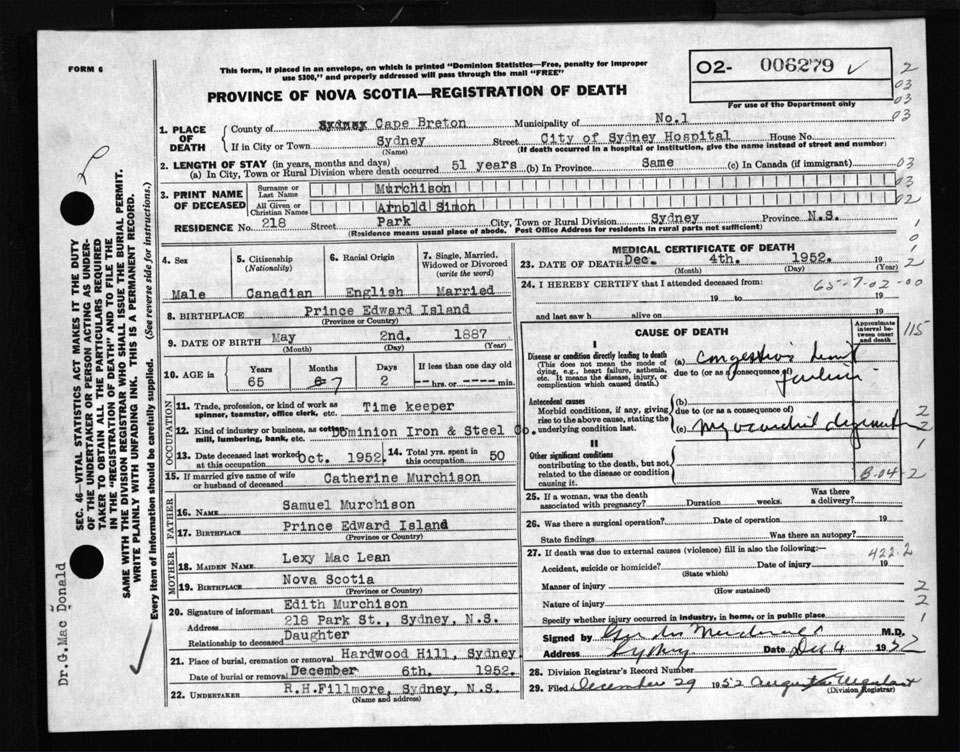 FORM 6
This form, if placed in an envelope, on which is printed "Dominion Statistics—Free, penalty for improper
use $300," and properly addressed will pass through the mail "FREE"
O2- 006279
For use of the Department only
PROVINCE OF NOVA SCOTIA—REGISTRATION OF DEATH
1. PLACE OF DEATH
County of Sydney Cape Breton Municipality of No.1
If in City or Town Sydney Street City of Sydney Hospital House No.
(Name) (If death occurred in a hospital or institution, give the name instead of street and number)
2. LENGTH OF STAY (in years, months and days)
(a) In City, Town or Rural Division where death occurred 51 years (b) In Province Same (c) In Canada (if immigrant)
3. PRINT NAME OF DECEASED
Surname or Last Name Murchison
All Given or Christian Names Arnold Simon
RESIDENCE No. 218 Street Park City, Town or Rural Division Sydney Province N.S.
(Residence means usual place of abode. Post Office Address for residents in rural parts not sufficient)
4. Sex
Male
5. Citizenship
(Nationality)
Canadian
6. Racial Origin
English
7. Single, Married, Widowed or Divorced
(write the word)
Married
8. BIRTHPLACE Prince Edward Island
(Province or Country)
9. DATE OF BIRTH May 2nd. 1887
(Month) (Day) (Year)
10. AGE in Years Months Days If less than one day old
65 7 2 -- hrs. or -- min.
OCCUPATION
11. Trade, profession, or kind of work as
spinner, teamster, office clerk, etc. Time keeper
12. Kind of industry or business, as cotton
mill, lumbering, bank, etc. Dominion Iron & Steel Co.
13. Date deceased last worked
at this occupation Oct. 1952.
14. Total yrs. spent in
this occupation 50
15. If married give name of wife
or husband of deceased Catherine Murchison
FATHER
16. NAME Samuel Murchison
17. BIRTHPLACE Prince Edward Island
(Province or Country)
MOTHER
18. MAIDEN NAME Lexy Mac Lean
19. BIRTHPLACE Nova Scotia
(Province or Country)
20. Signature of informant Edith Murchison
Address 218 Park St., Sydney, N.S.
Relationship to deceased Daughter
21. Place of burial, cremation or removal Hardwood Hill, Sydney
Date of burial or removal December 6th. 1952.
22. UNDERTAKER R.H.Fillmore, Sydney, N.S.
(Name and address)
MEDICAL CERTIFICATE OF DEATH
23. DATE OF DEATH Dec. 4th. 1952. 19
(Month) (Day) (Year)
24. I HEREBY CERTIFY that I attended deceased from:
65-7-02-00
19 to 19
and last saw h alive on 19
CAUSE OF DEATH
Approximate interval between onset and death
I
Disease or condition directly leading to death
(This does not mean the mode of
dying, e.g., heart failure, asthenia,
etc. It means the disease, injury, or
complication which caused death.)
(a) Congestive heart
due to (or as a consequence of)
failure
115
Antecedent causes
Morbid conditions, if any, giving
rise to the above cause, stating the
underlying condition last.
(b)
due to (or as a consequence of)
(c) myocardial
II
Other significant conditions
contributing to the death, but not
related to the disease or condition
causing it.
B-04-2
25. If a woman, was the death
associated with pregnancy? Duration weeks. Was there
a delivery?
26. Was there a surgical operation? Date of operation 19
State findings Was there an autopsy?
27. If death was due to external causes (violence) fill in also the following:—
422.2
Accident, suicide or homicide? Date of injury 19
(State which)
Manner of injury
(How sustained)
Nature of injury
Specify whether injury occurred in industry, in home, or in public place
Signed by M.D.
Address Sydney Date Dec 4 1952
28. Division Registrar's Record Number
29. Filed December 29 1952
(Division Registrar)
SEC. 46—VITAL STATISTICS ACT MAKES IT THE DUTY
OF THE UNDERTAKER OR PERSON ACTING AS UNDER-
TAKER TO OBTAIN ALL THE PARTICULARS REQUIRED
IN THE "REGISTRATION OF DEATH" AND TO FILE THE
SAME WITH THE DIVISION REGISTRAR WHO SHALL ISSUE THE BURIAL PERMIT.
WRITE PLAINLY WITH UNFADING INK. THIS IS A PERMANENT RECORD.
Every item of information should be carefully supplied. (See reverse side for instructions.)
Dr.G.Mac Donald
2
03
03
03
03
03
02
1
0
1
2
2
2
2
2
1